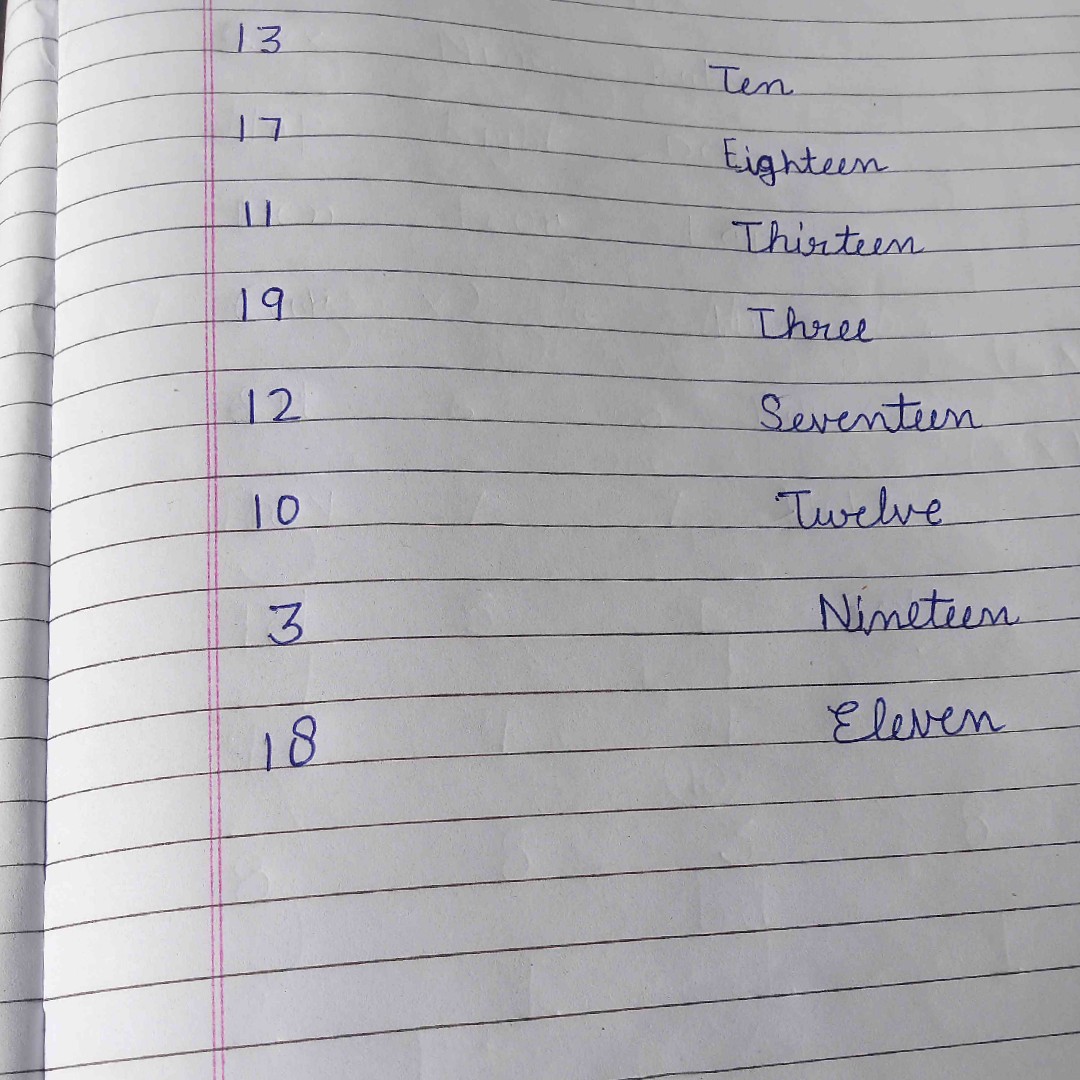 13 Ten
17 Eighteen
11 Thirteen
19 Three
12 Seventeen
10 Twelve
3 Nineteen
18 Eleven